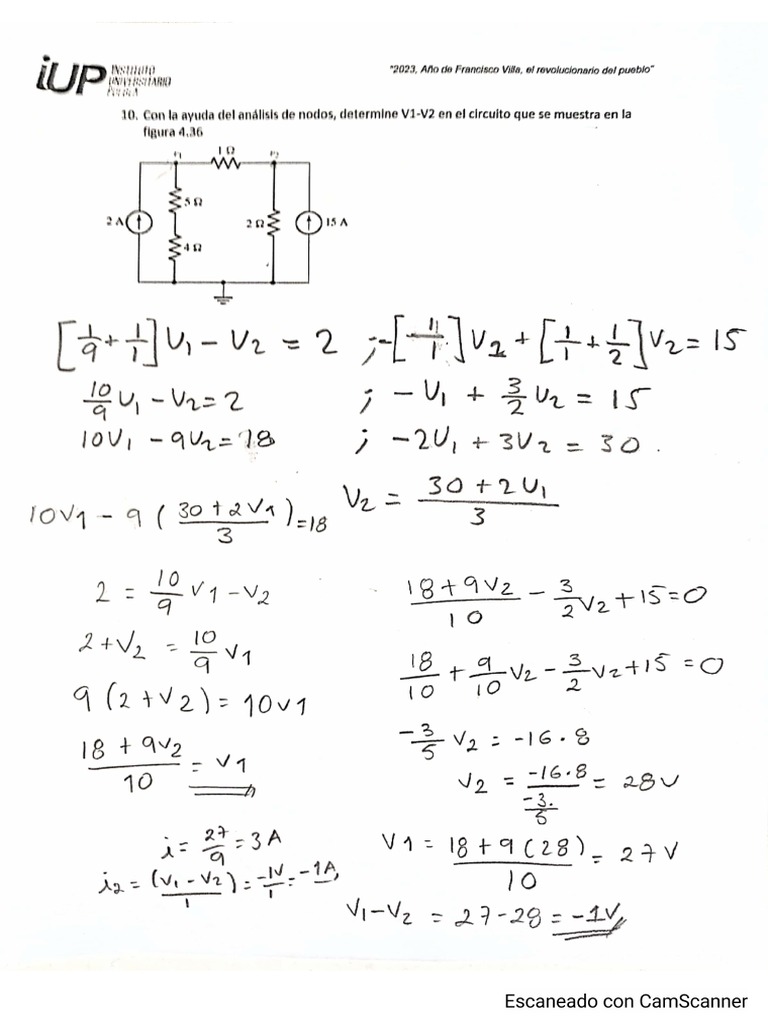 iUP INSTITUTO
UNIVERSITARIO
PUEBLA
"2023, Año de Francisco Villa, el revolucionario del pueblo"
10. Con la ayuda del análisis de nodos, determine V1-V2 en el circuito que se muestra en la
figura 4.36
1 Ω
5 Ω
2 A
2 Ω
15 A
4 Ω
[1/9 + 1/1] V1 - V2 = 2 ; -[1/1] V2 + [1/1 + 1/2] V2 = 15
10/9 V1 - V2 = 2 ; - V1 + 3/2 V2 = 15
10V1 - 9V2 = 18 ; -2V1 + 3V2 = 30.
V2 = (30 + 2V1)/3
10V1 - 9 ((30 + 2V1)/3) = 18
2 = 10/9 V1 - V2
2 + V2 = 10/9 V1
9 (2 + V2) = 10V1
(18 + 9V2)/10 = V1
(18 + 9V2)/10 - 3/2 V2 + 15 = 0
18/10 + 9/10 V2 - 3/2 V2 + 15 = 0
-3/5 V2 = -16.8
V2 = -16.8/(-3/5) = 28V
i = 27/9 = 3A
i2 = (V1 - V2)/1 = -1V/1 = -1A
V1 = (18 + 9(28))/10 = 27V
V1 - V2 = 27 - 28 = -1V
Escaneado con CamScanner